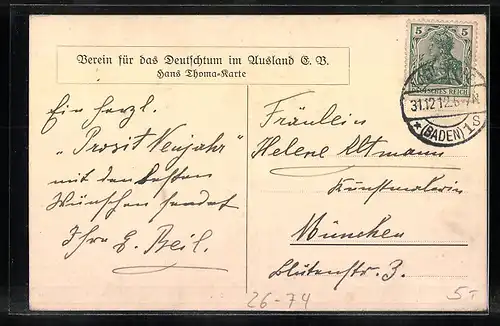 Verein für das Deutschtum im Ausland E. V.
Hans Thoma-Karte
5 5
DEUTSCHES REICH
31.12.12.
* (BADEN) 1 S
Ein herzl.
"Prosit Neujahr"
mit den besten
Wünschen sendet
Ihr E. Beil.
Fräulein
Helene Altmann
Kunstmalerin
München
Blütenstr. 3.
26-74
5.-